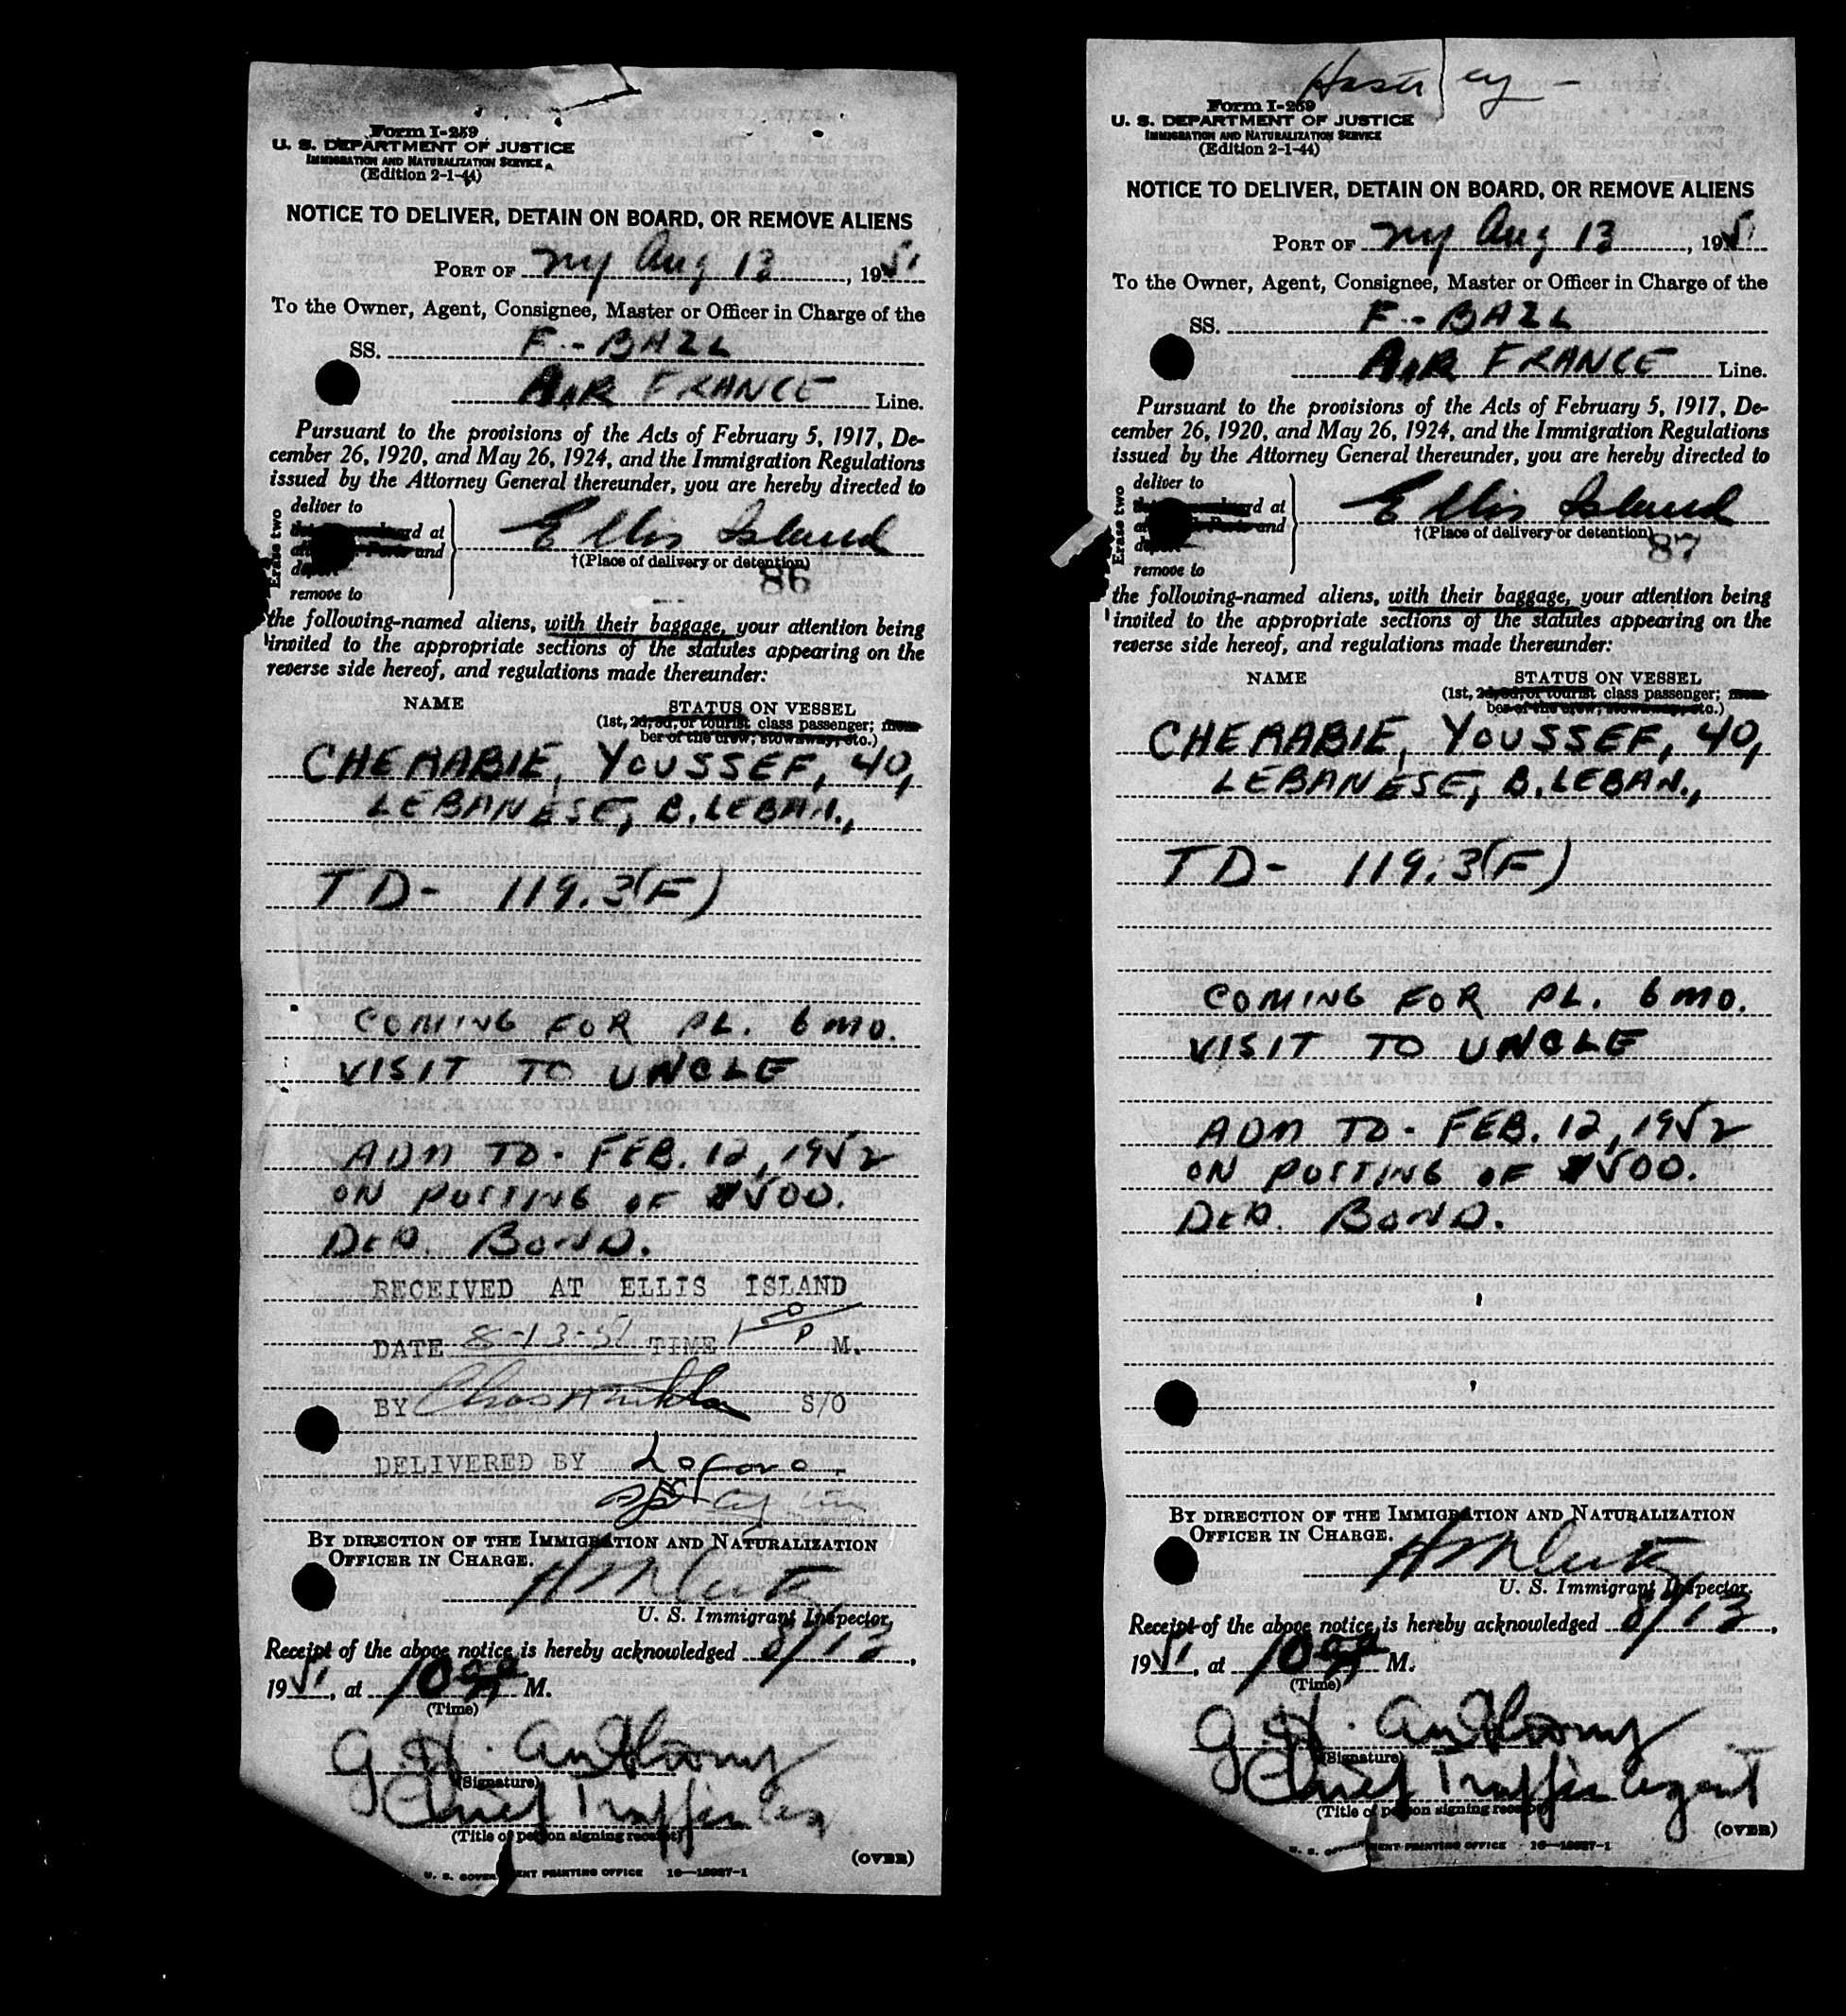 Form I-259
U. S. DEPARTMENT OF JUSTICE
IMMIGRATION AND NATURALIZATION SERVICE
(Edition 2-1-44)
NOTICE TO DELIVER, DETAIN ON BOARD, OR REMOVE ALIENS
PORT OF NY Aug 13, 1951
To the Owner, Agent, Consignee, Master or Officer in Charge of the
SS. F.-BAZL
AIR FRANCE Line.
Pursuant to the provisions of the Acts of February 5, 1917, De-
cember 26, 1920, and May 26, 1924, and the Immigration Regulations
issued by the Attorney General thereunder, you are hereby directed to
Erase two
deliver to
rd at
and
remove to
Ellis Island
†(Place of delivery or detention)
86
the following-named aliens, with their baggage, your attention being
invited to the appropriate sections of the statutes appearing on the
reverse side hereof, and regulations made thereunder:
NAME
STATUS ON VESSEL
(1st, 2d, 3d, or tourist class passenger; mem-
ber of the crew, stowaway, etc.)
CHERABIE, YOUSSEF, 40,
LEBANESE, B. LEBAN.,
TD- 119.3(F)
COMING FOR PL. 6 MO.
VISIT TO UNCLE
ADM TO- FEB. 12, 1952
ON POSTING OF $500.
DEP. BOND.
RECEIVED AT ELLIS ISLAND
DATE 8-13-51 TIME 1 00 P M.
BY S/O
DELIVERED BY
BY DIRECTION OF THE IMMIGRATION AND NATURALIZATION
OFFICER IN CHARGE.
U. S. Immigrant Inspector.
Receipt of the above notice is hereby acknowledged 8/13,
1951, at M.
(Time)
G. H. Anthony
(Signature)
Chief Traffic
(Title of person signing receipt)
(OVER)
U. S. GOVERNMENT PRINTING OFFICE
Form I-259
U. S. DEPARTMENT OF JUSTICE
IMMIGRATION AND NATURALIZATION SERVICE
(Edition 2-1-44)
NOTICE TO DELIVER, DETAIN ON BOARD, OR REMOVE ALIENS
PORT OF NY Aug 13, 1951
To the Owner, Agent, Consignee, Master or Officer in Charge of the
SS. F.-BAZL
AIR FRANCE Line.
Pursuant to the provisions of the Acts of February 5, 1917, De-
cember 26, 1920, and May 26, 1924, and the Immigration Regulations
issued by the Attorney General thereunder, you are hereby directed to
Erase two
deliver to
rd at
and
remove to
Ellis Island
†(Place of delivery or detention)
87
the following-named aliens, with their baggage, your attention being
invited to the appropriate sections of the statutes appearing on the
reverse side hereof, and regulations made thereunder:
NAME
STATUS ON VESSEL
(1st, 2d, 3d, or tourist class passenger; mem-
ber of the crew, stowaway, etc.)
CHERABIE, YOUSSEF, 40,
LEBANESE, B. LEBAN.,
TD- 119.3(F)
COMING FOR PL. 6 MO.
VISIT TO UNCLE
ADM TO- FEB. 12, 1952
ON POSTING OF $500.
DEP. BOND.
BY DIRECTION OF THE IMMIGRATION AND NATURALIZATION
OFFICER IN CHARGE.
U. S. Immigrant Inspector.
Receipt of the above notice is hereby acknowledged 8/13,
1951, at M.
(Time)
G. H. Anthony
(Signature)
Chief Traffic Agent
(Title of person signing receipt)
(OVER)
U. S. GOVERNMENT PRINTING OFFICE